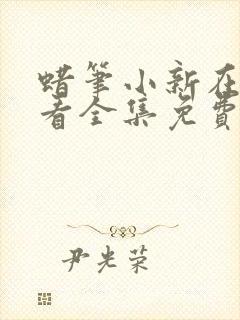 蜡笔小新在
看全集免费
尹光荣